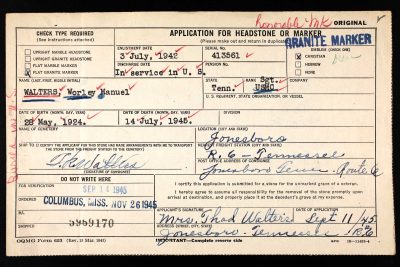 Honorable MK ORIGINAL
CHECK TYPE REQUIRED
(See instructions attached)
APPLICATION FOR HEADSTONE OR MARKER
(Please make out and return in duplicate)
GRANITE MARKER
UPRIGHT MARBLE HEADSTONE
UPRIGHT GRANITE HEADSTONE
FLAT MARBLE MARKER
FLAT GRANITE MARKER
ENLISTMENT DATE
3 July, 1942
SERIAL No.
413561
EMBLEM (CHECK ONE)
CHRISTIAN
HEBREW
NONE
DISCHARGE DATE
In service in U. S.
PENSION No.
NAME (LAST, FIRST, MIDDLE INITIAL)
WALTERS, Worley Manuel
STATE
Tenn.
RANK
Sgt.
USMC.
U. S. REGIMENT, STATE ORGANIZATION, OR VESSEL
DATE OF BIRTH (MONTH, DAY, YEAR)
28 May, 1924.
DATE OF DEATH (MONTH, DAY, YEAR)
14 July, 1945.
NAME OF CEMETERY
LOCATION (CITY AND STATE)
Jonesboro
R. 6 - Tennessee
SHIP TO (I CERTIFY THE APPLICANT FOR THIS STONE HAS MADE ARRANGEMENTS WITH ME TO TRANSPORT
THE STONE FROM THE FREIGHT STATION TO THE CEMETERY)
(SIGNATURE OF CONSIGNEE)
POST OFFICE ADDRESS OF CONSIGNEE
Jonesboro Tenn. Route 6
DO NOT WRITE HERE
FOR VERIFICATION
SEP 14 1945
ORDERED
COLUMBUS, MISS. NOV 26 1945
5959170
This application is submitted for a stone for the unmarked grave of a veteran.
I hereby agree to assume all responsibility for the removal of the stone promptly upon arrival at destination, and properly place it at the decedent's grave at my expense.
APPLICANT'S SIGNATURE
DATE OF APPLICATION
Mrs. Thad Walters Sept 11/45
ADDRESS
Jonesboro - Tennessee R 6
OQMG Form 623
IMPORTANT—Complete reverse side
GPO